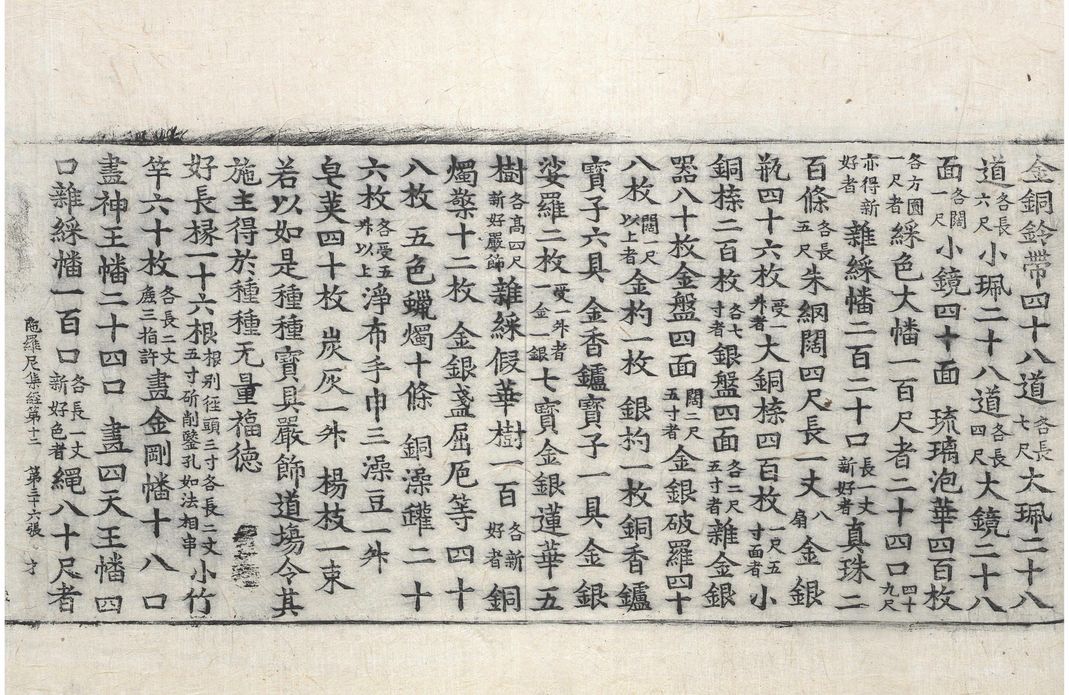 金銅鈴帶四十八道各長七尺大珮二十八
道各長六尺小珮二十八道各長四尺大鏡二十八
面各闊一尺小鏡四十面 琉璃泡華四百枚
各方圓一尺者綵色大幡一百尺者二十四口四十九尺
亦得新好者雜綵幡二百二十口長一丈新好者真珠二
百條各長五尺朱網闊四尺長一丈八扇金銀
瓶四十六枚受一升者大銅㮈四百枚一尺五寸面者小
銅㮈二百枚各七寸者銀盤四面各二尺五寸者雜金銀
器八十枚金盤四面闊二尺五寸者金銀破羅四十
八枚闊一尺以上者金杓一枚 銀杓一枚銅香鑪
寶子六具 金香鑪寶子一具 金銀
娑羅二枚受一升者一金一銀七寶金銀蓮華五
樹各高四尺新好嚴飾雜綵假華樹一百各新好者銅
燭檠十二枚 金銀盞屈卮等四十
八枚 五色蠟燭十條 銅澡罐二十
六枚各受五升以上淨布手巾三澡豆一升
皂莢四十枚 炭灰一升 楊枝一束
若以如是種種寶具嚴飾道場令其
施主得於種種无量福德
好長椽一十六根根別徑頭三寸各長二丈五寸斫削鑿孔如法相串小竹
竿六十枚各長二丈麁三指許畫金剛幡十八口
畫神王幡二十四口 畫四天王幡四
口雜綵幡一百口各長一丈新好色者繩八十尺者
陁羅尼集經第十二 第三十六張 才